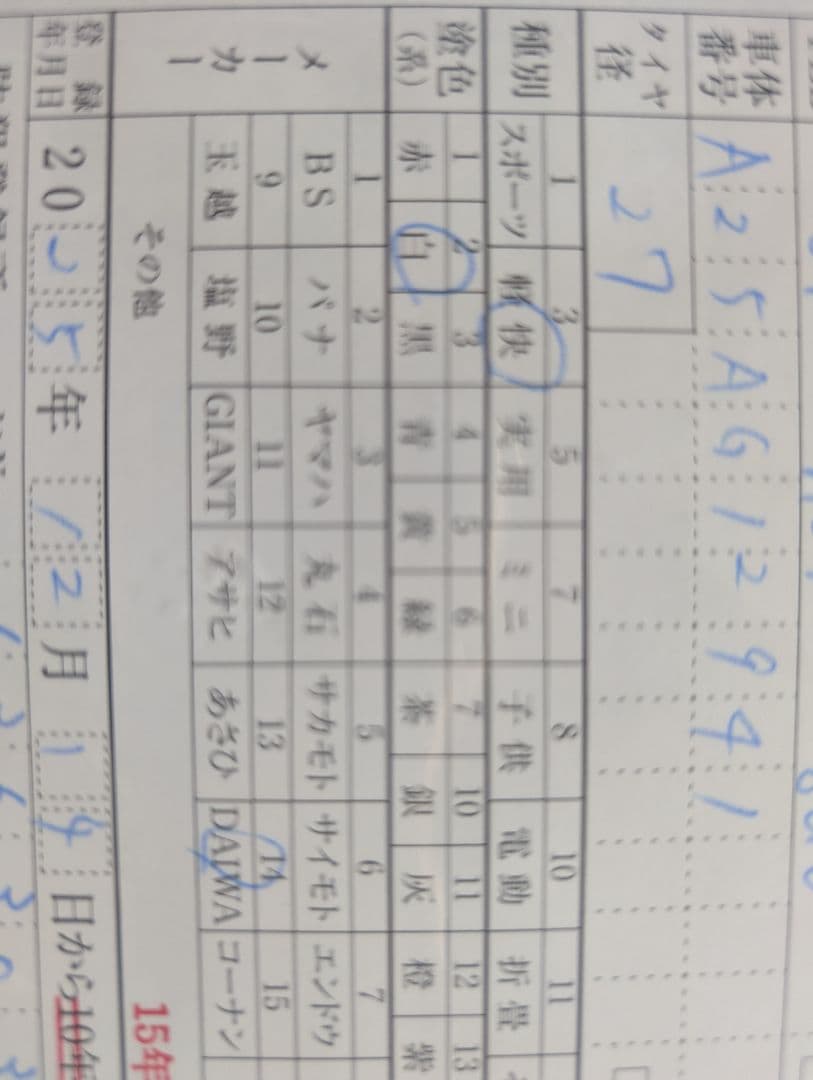 車体番号 A25AG12941
タイヤ径 27
種別 1 3 5 7 8 10 11
スポーツ 軽快 実用 ミニ 子供 電動 折畳
塗色(系) 1 2 3 4 5 6 7 10 11 12 13
赤 白 黒 青 黄 緑 茶 銀 灰 橙 紫
メーカー 1 2 3 4 5 6 7
BS パナ ヤマハ 丸石 サカモト サイモト エンドウ
9 10 11 12 13 14 15
玉越 塩野 GIANT アサヒ あさひ DAIWA コーナン
その他
15年
登録年月日 2025年12月14日から10年